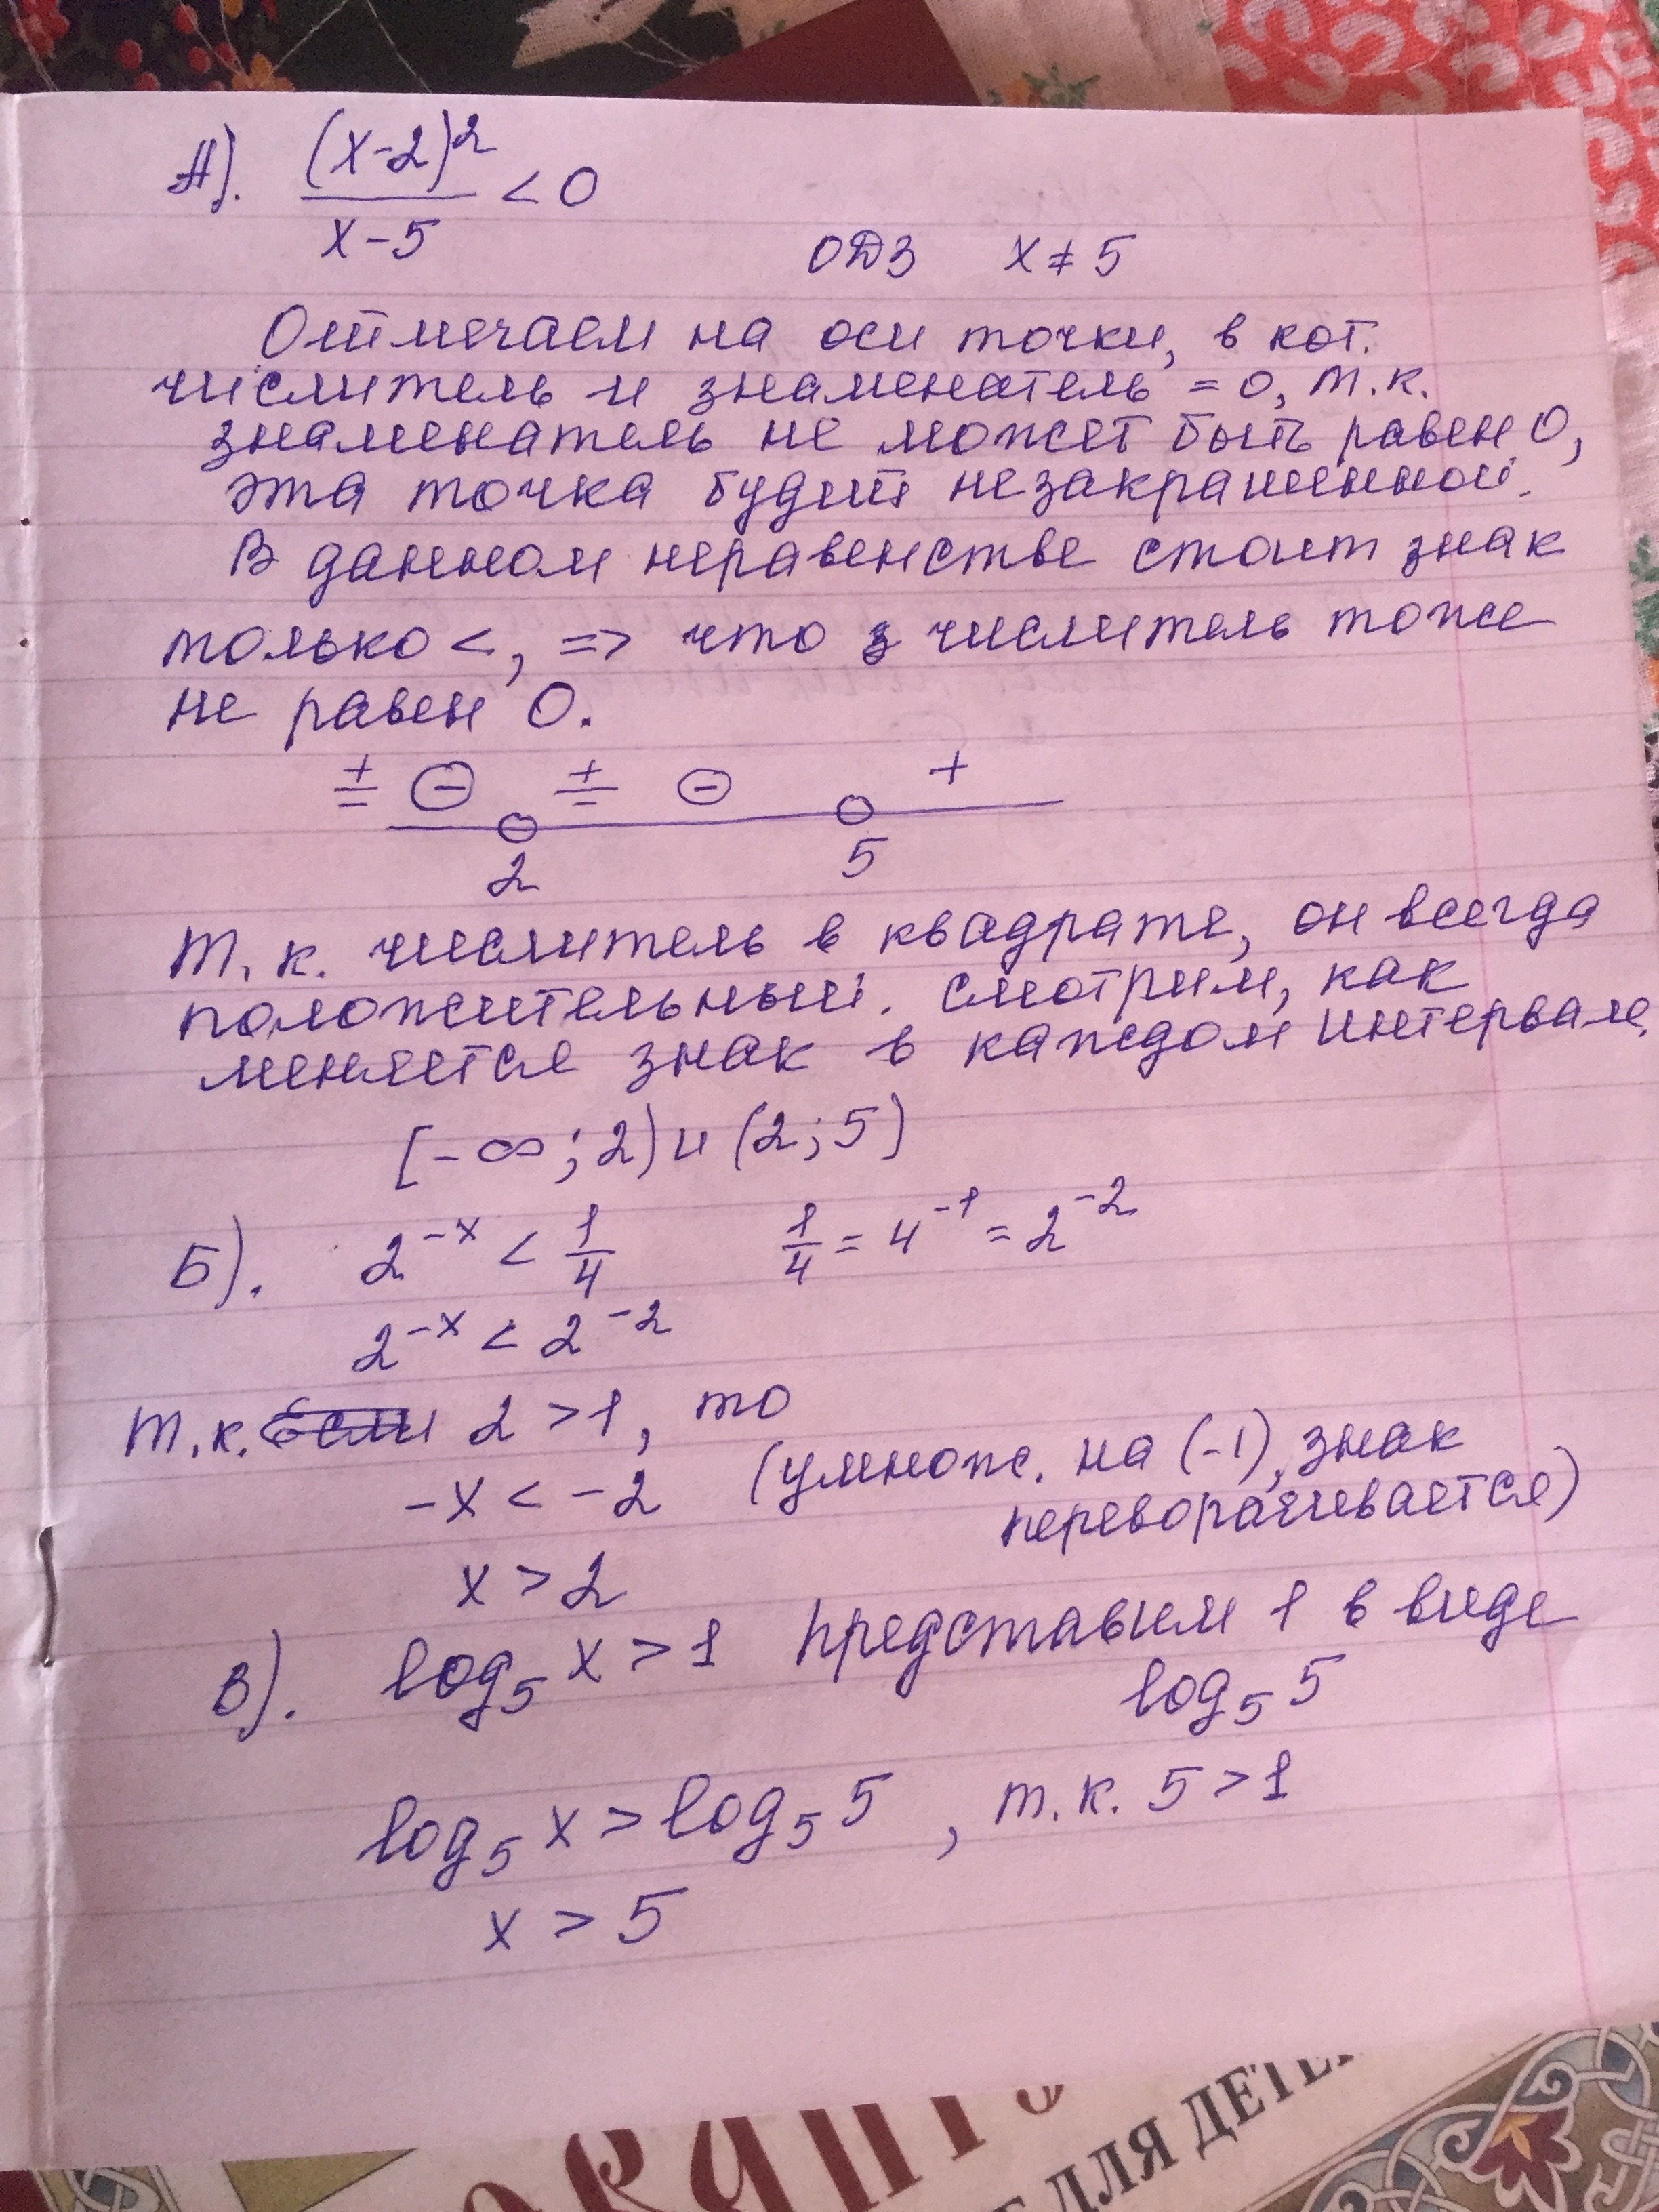 А). (x-2)²/(x-5) < 0
ОДЗ x ≠ 5
Отмечаем на оси точки, в кот.
числитель и знаменатель = 0, т.к.
знаменатель не может быть равен 0,
эта точка будет незакрашенной.
В данном неравенстве стоит знак
только <, => что числитель тоже
не равен 0.
+/= ⊖ +/= ⊖ +
2 5
Т.к. числитель в квадрате, он всегда
положительный. Смотрим, как
меняется знак в каждом интервале.
[-∞; 2) и (2; 5)
Б). 2^(-x) < 1/4 1/4 = 4^(-1) = 2^(-2)
2^(-x) < 2^(-2)
т.к. если 2 > 1, то
-x < -2 (умнож. на (-1), знак
переворачивается)
x > 2
В). log₅ x > 1 представим 1 в виде
log₅ 5
log₅ x > log₅ 5, т.к. 5 > 1
x > 5
ДЛЯ ДЕТЕ